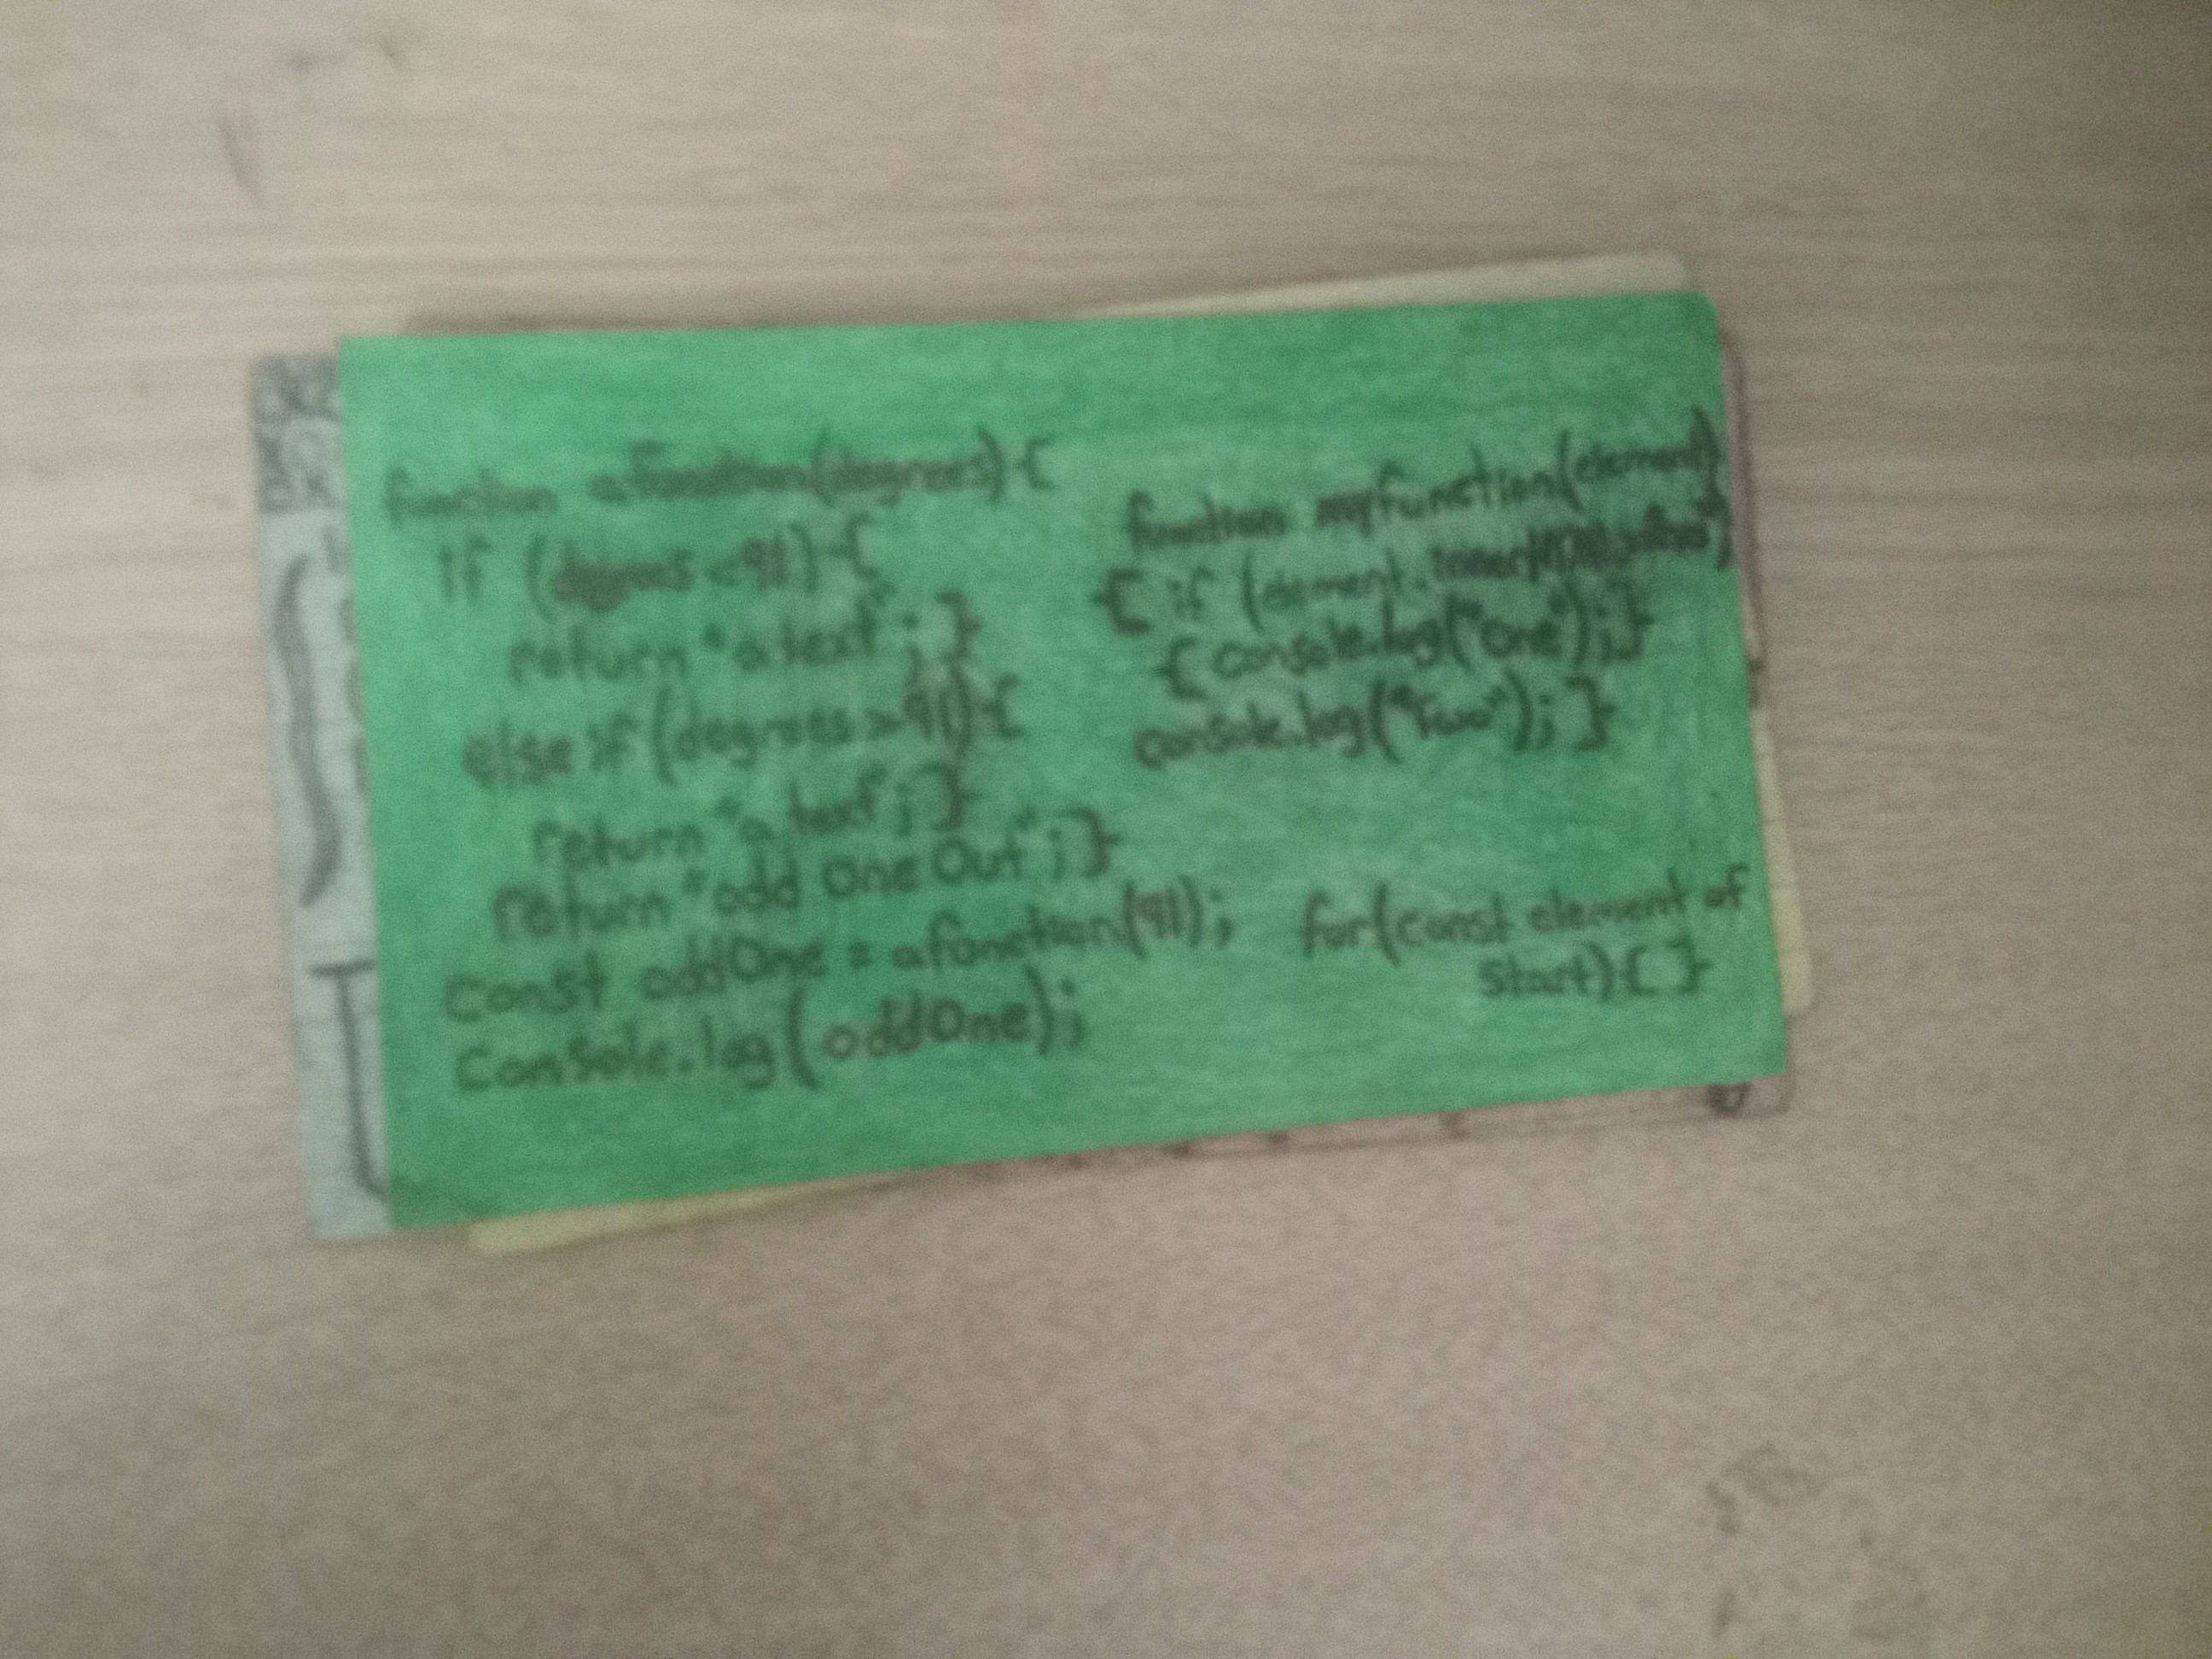 function afunction(degrees){
if (degrees <91){
return "a text";}
else if (degrees >91){
return "a text";}
return "odd One Out";}
const oddOne = afunction(91);
Console.log(oddOne);
function myfunction(element)
{ if (element.
{console.log("one");}
console.log("Two");}
for(const element of
start){ }